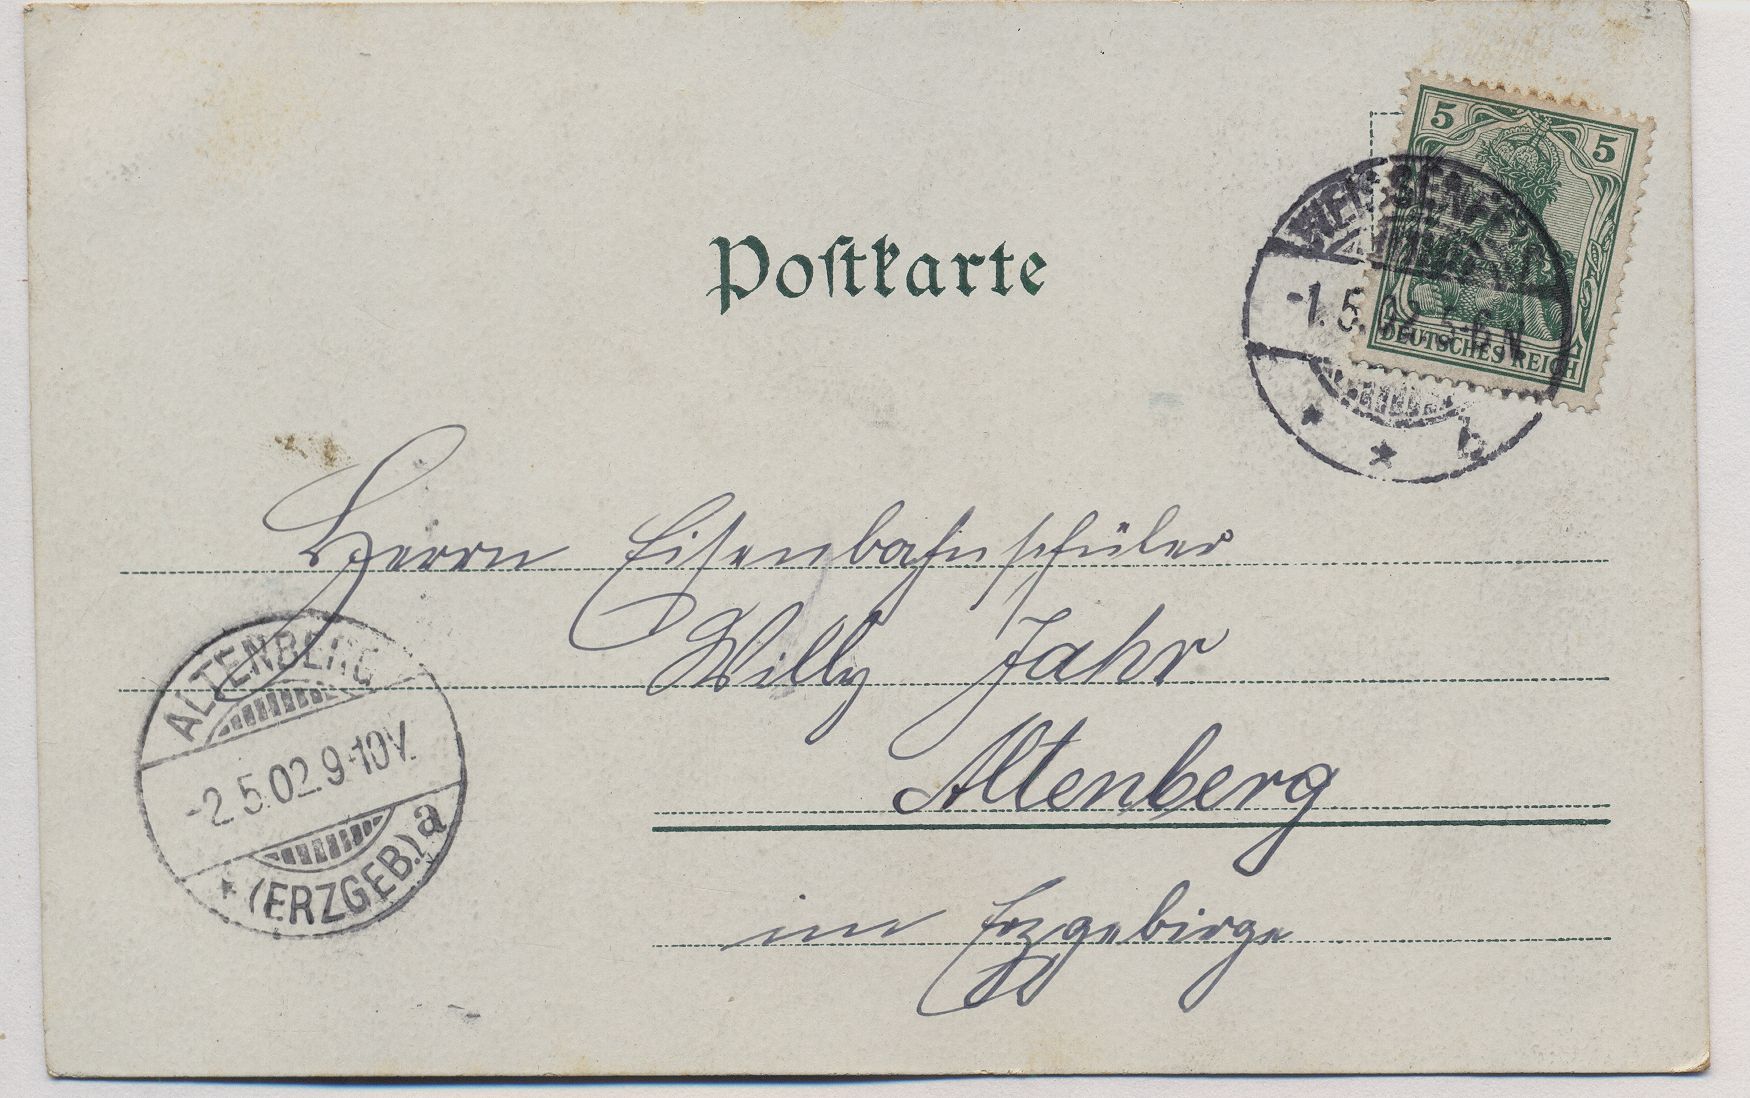 5 5
DEUTSCHES REICH
WEISSENFELS
-1.5.02.5-6N.
b
Postkarte
Herrn Eisenbahnschüler
Willy Jahr
Altenberg
im Erzgebirge
ALTENBERG
-2.5.02.9-10V.
(ERZGEB.) a